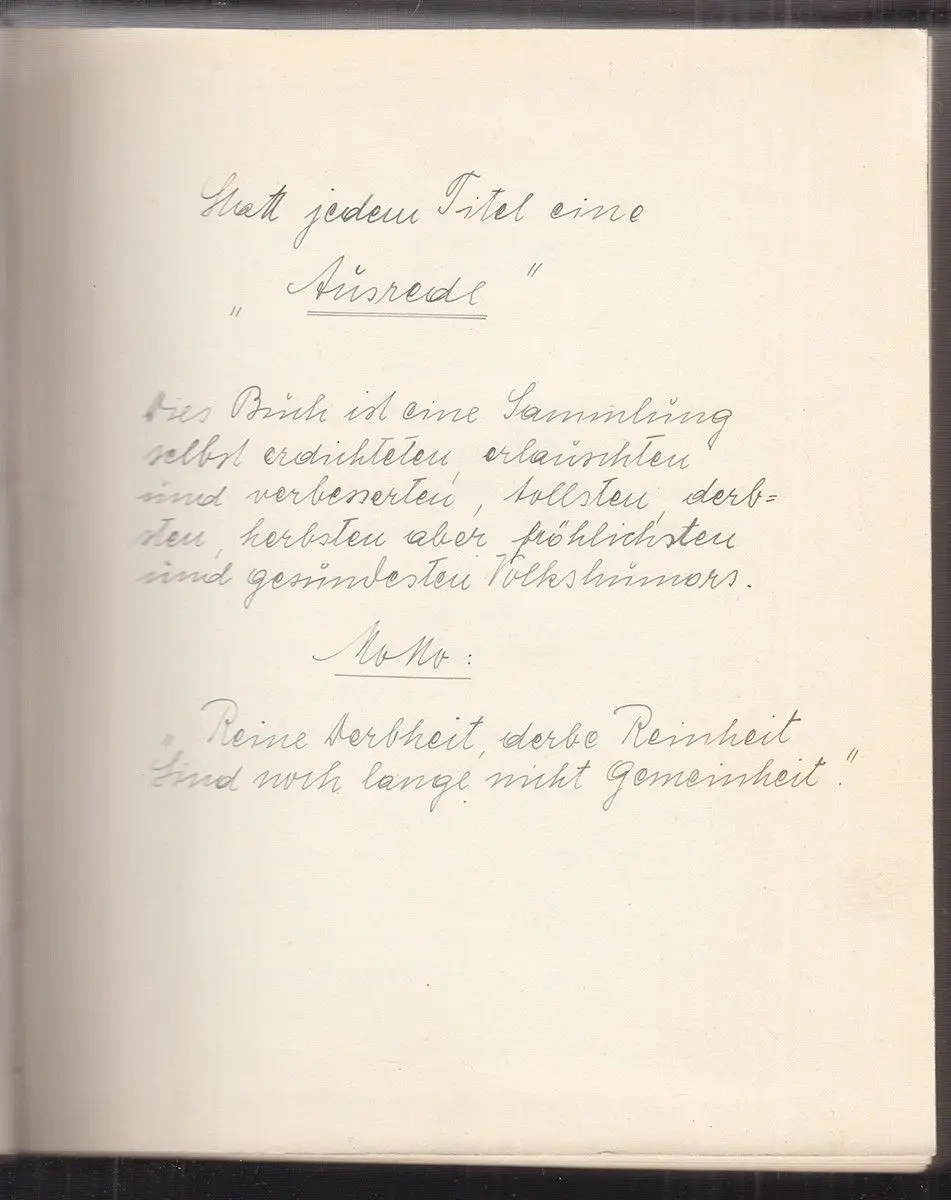 Statt jedem Titel eine
„Ausrede"
Dies Buch ist eine Sammlung
selbst erdichteten, erlauschten
und verbesserten, tollsten, derb=
sten, herbsten aber fröhlichsten
und gesundesten Volkshumors.
Motto:
„Reine Derbheit, derbe Reinheit
Sind noch lange nicht Gemeinheit".